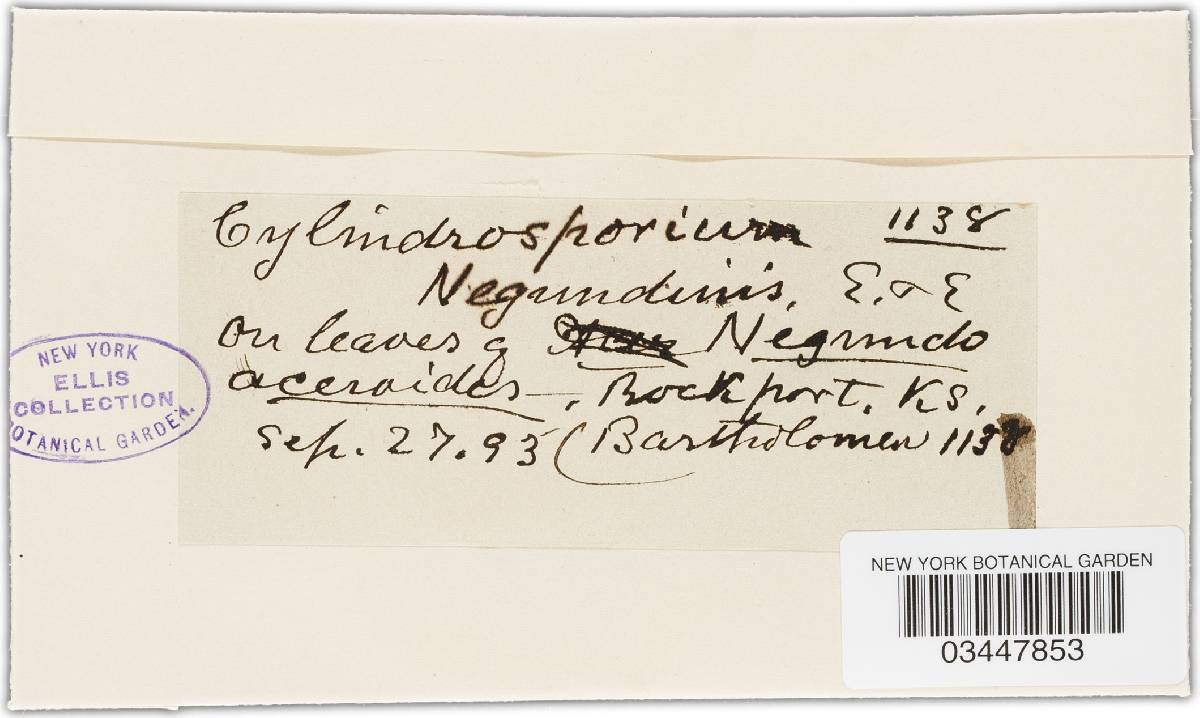 Cylindrosporium 1138
Negundinis, E. & E
on leaves of Negundo
aceroides—, Rockport, Ks,
Sep. 27. 93 (Bartholomew 1138
NEW YORK
ELLIS
COLLECTION
BOTANICAL GARDEN.
NEW YORK BOTANICAL GARDEN
03447853